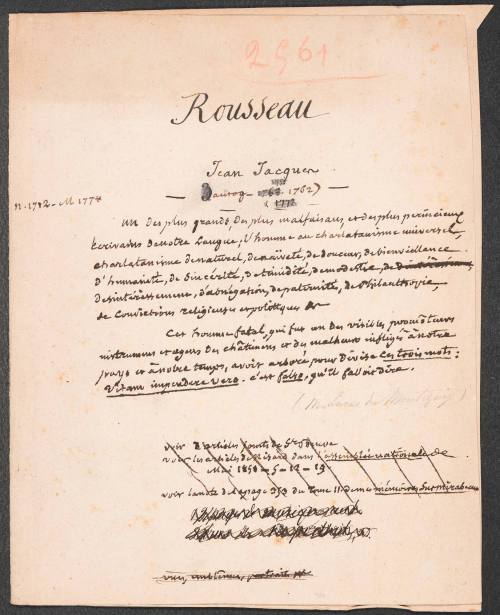 2561
Rousseau
Jean Jacques
1762)
1778
n. 1712 - M 1778
un des plus grands, des plus malfaisans, et des plus pernicieux
Ecrivains de notre Langue, l'homme au charlatanisme universel,
charlatanisme de naturel, de naïveté, de douceur, de bienveillance
d'humanité, de Sincérité, de timidité, de modestie, de
desintéressement, d'abnégation, de paternité, de Philanthropie,
de Convictions religieuses et politiques &c
Cet homme fatal, qui fut un des visibles
instrumens et agens des châtimens et des malheurs infligés à notre
pays et à notre temps, avoit arboré pour Devise Ces trois mots:
Vitam impendere vero. c'est falso, qu'il falloit dire.
voir d'articles joints de Ste Beuve
voir les articles de Nisard dans l'assemblée nationale de
Mai 1851 - 5 - 12 - 19
voir la note de la page 353 du Tome II de mes mémoires Sur Mirabeau